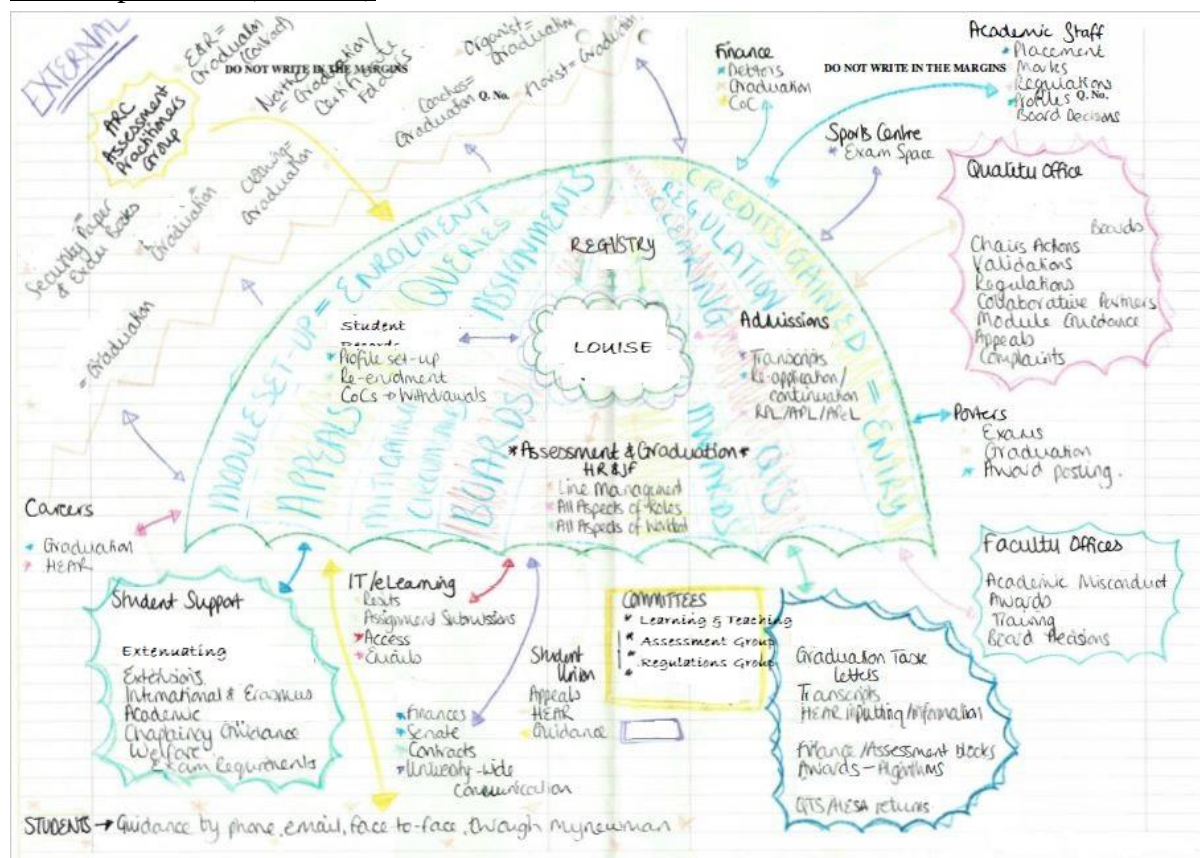 EXTERNAL
ARC
Assessment
Practitioners
Group
E&R =
Graduation
(Contact)
Graduation/
Certificate
Folders
Conches=
Graduation
Organist=
Graduation
Florist = Graduation
DO NOT WRITE IN THE MARGINS
Q. No.
Clothing=
Graduation
Graduation
Security Paper
& Exam Books
= Graduation
Finance
Debtors
Graduation
CoC
DO NOT WRITE IN THE MARGINS
Q. No.
Academic Staff
Placement
Marks
Regulations
Profiles
Board Decisions
Sports Centre
Exam Space
Quality Office
Boards
Chairs Actions
Validations
Regulations
Collaborative Partners
Module Guidance
Appeals
Complaints
MODULE SET-UP = ENROLMENT
APPEALS
QUERIES
MITIGATING
CIRCUMSTANCES
BOARDS
ASSIGNMENTS
REGISTRY
LOUISE
REGULATION
CLEARING
CREDITS GAINED = ENTRY
AWARDS
QTS
Student
Records
Profile set-up
Re-enrolment
CoCs → Withdrawals
Admissions
Transcripts
Re-application/
continuation
RPL/APL/APeL
*Assessment & Graduation*
HR & JF
Line Management
All Aspects of Roles
All Aspects of Workload
Porters
Exams
Graduation
Award posting.
Careers
Graduation
HEAR
Student Support
Extenuating
Extensions
International & Erasmus
Academic
Chaplaincy Guidance
Welfare
Exam Requirments
IT/eLearning
Resits
Assignment Submissions
Access
Emails
Finances
Senate
Contracts
University-wide
communication
Student
Union
Appeals
HEAR
Guidance
COMMITTEES
* Learning & Teaching
* Assessment Group
* Regulations Group
*
Graduation Task
letters
Transcripts
HEAR inputting/information
Finance/Assessment blocks
Awards - Algorithms
QTS/HESA returns
Faculty Offices
Academic Misconduct
Awards
Training
Board Decisions
STUDENTS → Guidance by phone, email, face to-face, through mynewman